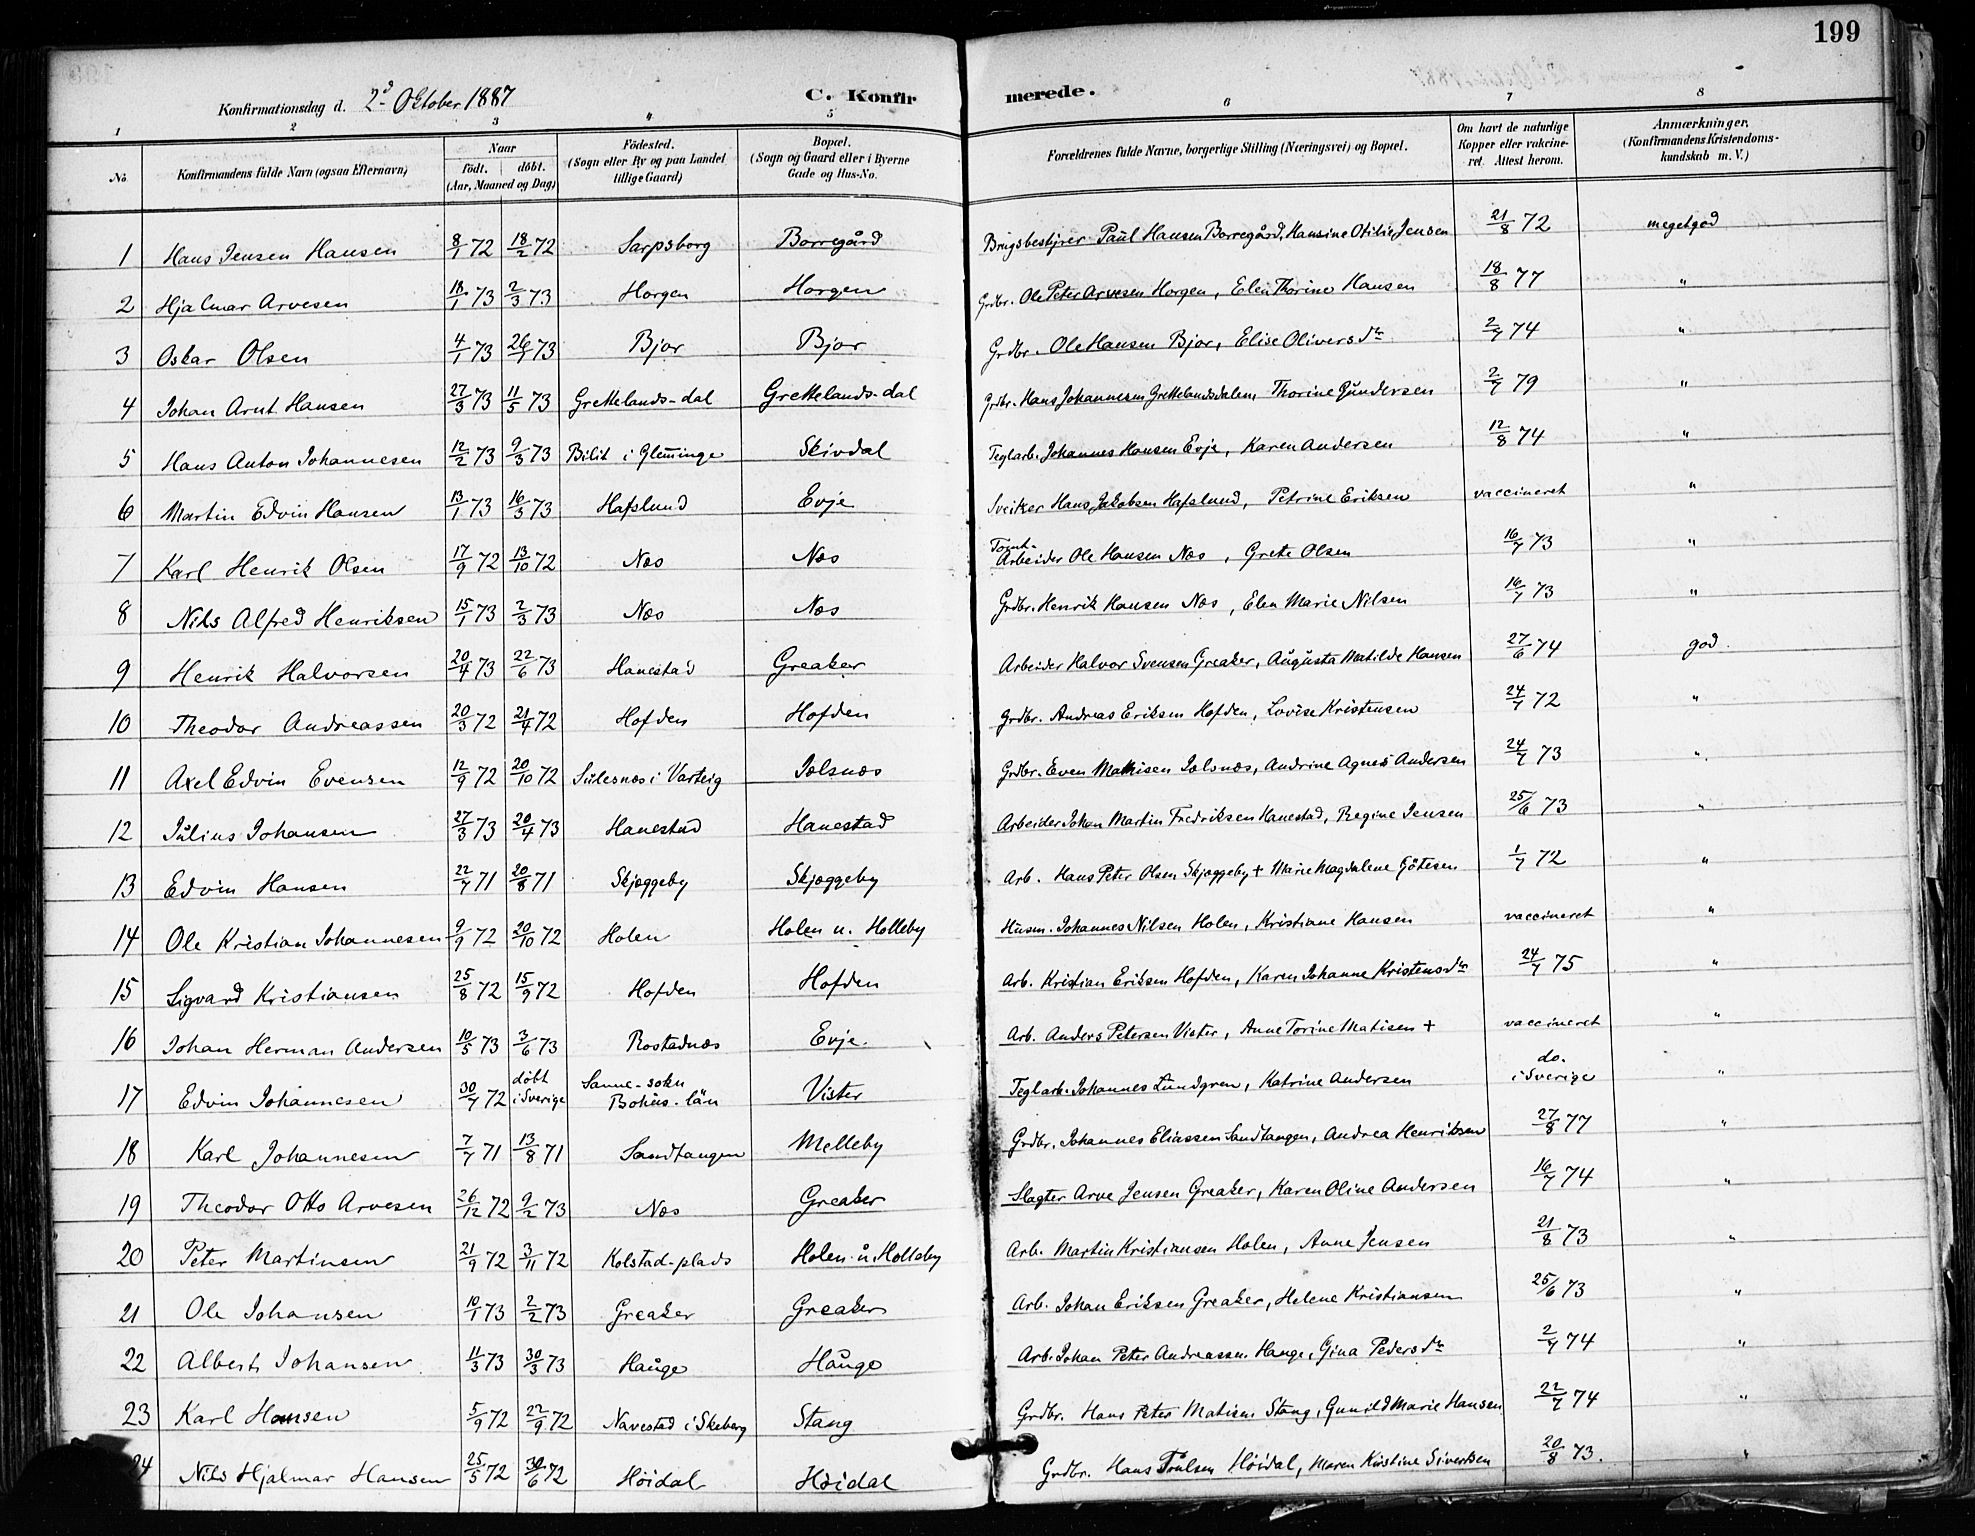 199
Konfirmationsdag d. 2d Oktober 1887 C. Konfir merede.
1 2 3 4 5 6 7 8
No. Konfirmandens fulde Navn (ogsaa Efternavn) Naar født. døbt. (Aar, Maaned og Dag) Fødested. (Sogn eller By og paa Landet tillige Gaard) Bopæl. (Sogn og Gaard eller i Byerne Gade og Hus-No. Forældrenes fulde Navne, borgerlige Stilling (Næringsvei) og Bopæl. Om havt de naturlige Kopper eller vakcineret. Attest herom. Anmærkninger. (Konfirmandens Kristendomskundskab m. V.)
1 Hans Jensen Hansen 8/1 72 18/2 72 Sarpsborg Borregård Brugsbestyrer Paul Hansen Borregård, Hansine Otilie Jensen 21/8 72 megetgod
2 Hjalmar Arvesen 18/1 73 2/3 73 Horgen Horgen Grdbr. Ole Peter Arvesen Horgen, Elen Thorine Hansen 18/8 77 "
3 Oskar Olsen 4/1 73 26/1 73 Bjor Bjor Grdbr. Ole Hansen Bjor, Elise Oliversdtr 2/7 74 "
4 Johan Arnt Hansen 27/3 73 11/5 73 Grettelands-dal Grettelands-dal Grdbr. Hans Johannesen Grettelandsdalen, Thorine Gundersen 2/7 79 "
5 Hans Anton Johannesen 12/2 73 9/3 73 Bilit i Glemminge Skivdal Teglarb. Johannes Hansen Evje, Karen Andersen 12/8 74 "
6 Martin Edvin Hansen 13/1 73 16/3 73 Hafslund Evje Sveiker Hans Jakobsen Hafslund, Petrine Eriksen vaccineret "
7 Karl Henrik Olsen 17/9 72 13/10 72 Næs Næs Tomt-Arbeider Ole Hansen Næs, Grete Olsen 16/7 73 "
8 Nils Alfred Henriksen 15/1 73 2/3 73 Næs Næs Grdbr. Henrik Hansen Næs, Elen Marie Nilsen 16/7 73 "
9 Henrik Halvorsen 20/4 73 22/6 73 Hanestad Greaker Arbeider Halvor Svensen Greaker, Augusta Matilde Hansen 27/6 74 god.
10 Theodor Andreassen 20/3 72 21/4 72 Hofden Hofden Grdbr. Andreas Eriksen Hofden, Lovise Kristensen 24/7 72 "
11 Axel Edvin Evensen 12/9 72 20/10 72 Sulesnæs i Varteig Jolsnæs Grdbr. Even Mathisen Jolsnæs, Andrine Agnes Andersen 24/7 73 "
12 Julius Johansen 27/3 73 20/4 73 Hanestad Hanestad Arbeider Johan Martin Fredriksen Hanestad, Regine Jensen 25/6 73 "
13 Edvin Hansen 22/7 71 20/8 71 Skjæggeby Skjæggeby Arb. Hans Peter Olsen Skjæggeby + Marie Magdalene Götesen 1/7 72 "
14 Ole Kristian Johannesen 9/9 72 20/10 72 Holen Holen u. Holleby Husm. Johannes Nilsen Holen, Kristiane Hansen vaccineret "
15 Sigvard Kristiansen 25/8 72 15/9 72 Hofden Hofden Arb. Kristian Eriksen Hofden, Karen Johanne Kristensdtr 24/7 75 "
16 Johan Herman Andersen 10/5 73 3/6 73 Rostadnæs Evje. Arb. Anders Petersen Vister, Anne Torine Matisen + vaccineret "
17 Edvin Johannesen 30/7 72 døbt i Sverige Sanne-sokn Bohus-län Vister Teglarb. Johannes Lundgren, Katrine Andersen do. i Sverige "
18 Karl Johannesen 7/7 71 13/8 71 Sandtangen Melleby Grdbr. Johannes Eliassen Sandtangen, Andrea Henriksen 27/8 77 "
19 Theodor Otto Arvesen 26/12 72 9/2 73 Næs Greaker Slagter Arve Jensen Greaker, Karen Oline Andersen 16/7 74 "
20 Peter Martinsen 21/9 72 3/11 72 Kolstad-plads Holen u. Holleby Arb. Martin Kristiansen Holen, Anne Jensen 21/8 73 "
21 Ole Johansen 10/1 73 2/2 73 Greaker Greaker Arb. Johan Eriksen Greaker, Helene Kristiansen 25/6 73 "
22 Albert Johansen 11/3 73 30/3 73 Hauge Hauge Arb. Johan Peter Andreassen Hauge, Gina Pedersdtr 2/7 74 "
23 Karl Hansen 5/9 72 22/9 72 Navestad i Skeberg Stang Grdbr. Hans Peter Matisen Stang, Gunild Marie Hansen 22/7 74 "
24 Nils Hjalmar Hansen 25/5 72 30/6 72 Höidal Höidal Grdbr. Hans Poulsen Höidal, Maren Kirstine Sivertsen 20/8 73. "